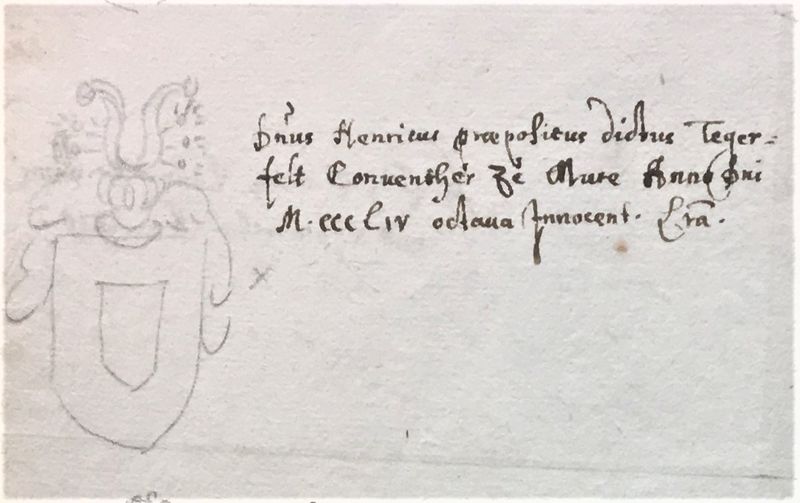 Dn̄us Henricus præpositus dictus Teger=
felt Conventher Zĕ Mure Anno Dni
M·CCCLIV octava Innocent. Lr̄a.